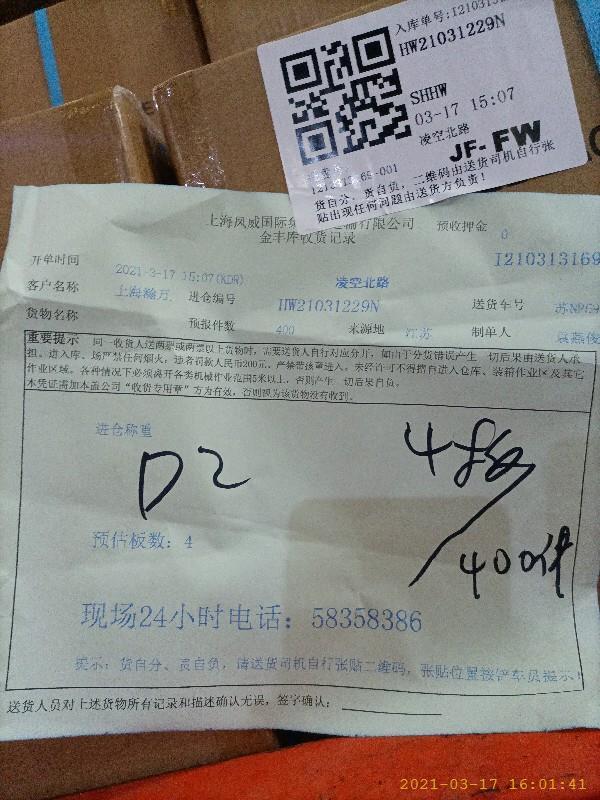 入库单号:I2103131
HW21031229N
SHHW
03-17 15:07
凌空北路
JF-FW
货自分、责自负，二维码由送货司机自行张
贴出现任何问题由送货方负责！
上海凤威国际 有限公司
预收押金 0
金丰库收货记录
开单时间 2021-3-17 15:07(KDR) 凌空北路 I210313169
客户名称 上海瀚万 进仓编号 HW21031229N 送货车号
货物名称 预报件数 400 来源地 江苏 制单人 袁燕俊
重要提示 同一收货人送两票或两票以上货物时，需要送货人自行对应分开，如由于分货错误产生一切后果由送货人承
担。进入库、场严禁任何烟火，违者罚款人民币200元。严禁带孩童进入。未经许可不得擅自进入仓库、装箱作业区及其它
作业区域。各种情况下必须离开各类机械作业范围5米以上，否则产生一切后果自负。
本凭证需加本公司“收货专用章”方为有效，否则视为该货物没有收到。
进仓称重
D2
4板
400件
预估板数：4
现场24小时电话：58358386
提示：货自分、责自负，请送货司机自行张贴二维码，张贴位置按铲车员提示！
送货人员对上述货物所有记录和描述确认无误，签字确认：
2021-03-17 16:01:41